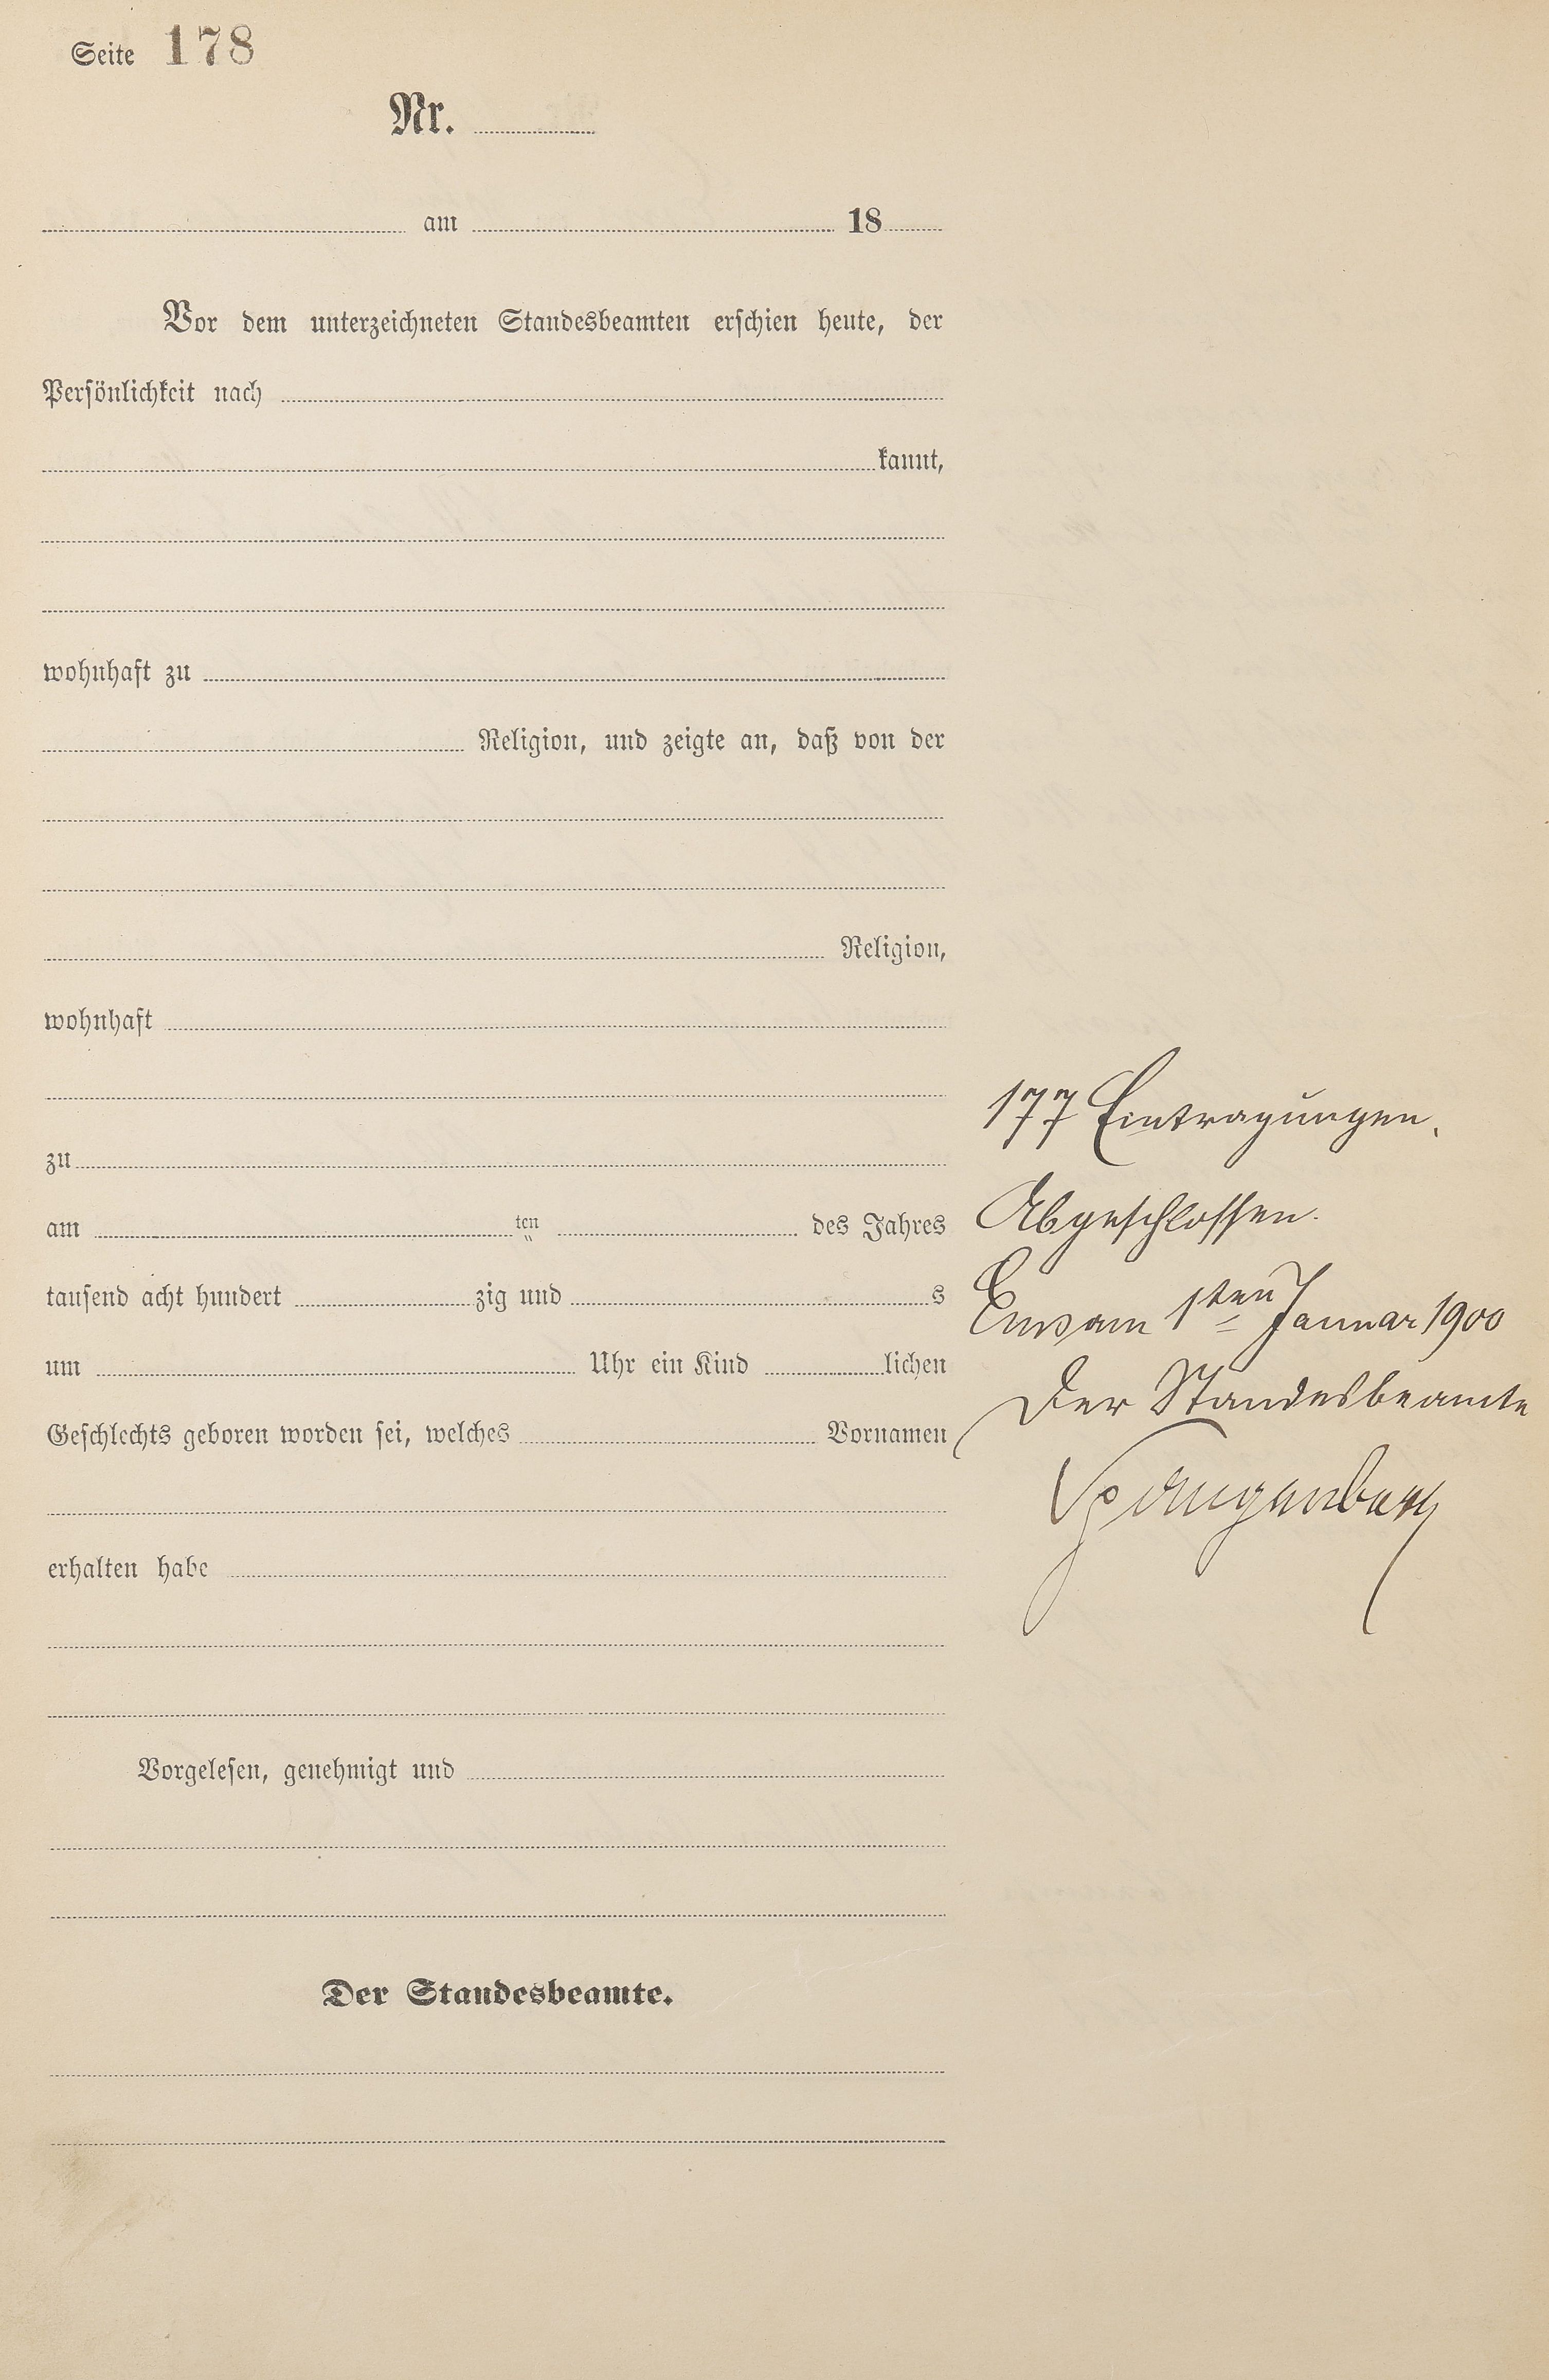 Seite 178
Nr.
am 18
Vor dem unterzeichneten Standesbeamten erschien heute, der
Persönlichkeit nach
kannt,
wohnhaft zu
Religion, und zeigte an, daß von der
Religion,
wohnhaft
zu
am ten des Jahres
tausend acht hundert zig und s
um Uhr ein Kind lichen
Geschlechts geboren worden sei, welches Vornamen
erhalten habe
Vorgelesen, genehmigt und
Der Standesbeamte.
177 Eintragungen.
Abgeschlossen.
Ems am 1ten Januar 1900
Der Standesbeamte